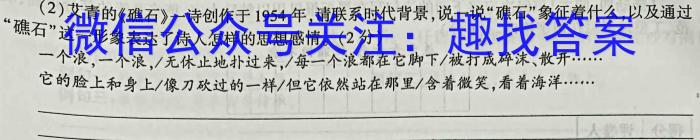 (2)艾青的《礁石》一诗创作于1954年,请联系时代背景,说一说“礁石”象征着什么,以及通过
“礁石”这一形象表达了诗人怎样的思想感情。(2分)
微信公众号关注：趣找答案
一个浪,一个浪,/无休止地扑过来,/每一个浪都在它脚下/被打成碎沫、散开……
它的脸上和身上/像刀砍过的一样/但它依然站在那里/含着微笑,看着海洋……